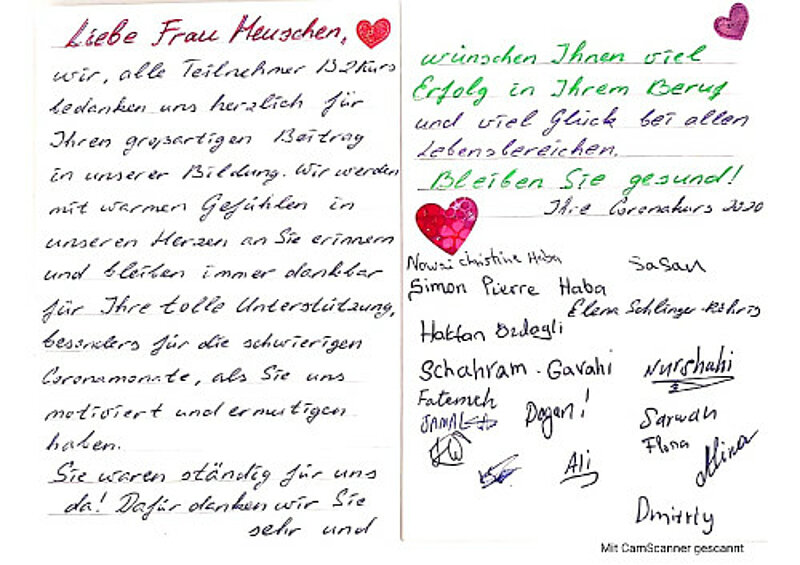 Liebe Frau Meuschen,
wir, alle Teilnehmer B2Kurs
bedanken uns herzlich für
Ihren großartigen Beitrag
in unserer Bildung. Wir werden
mit warmen Gefühlen in
unseren Herzen an Sie erinnern
und bleiben immer dankbar
für Ihre tolle Unterstützung,
besonders für die schwierigen
Coronamonate, als Sie uns
motiviert und ermutigen
haben.
Sie waren ständig für uns
da! Dafür danken wir Sie
sehr und
wünschen Ihnen viel
Erfolg in Ihrem Beruf
und viel Glück bei allen
Lebensbereichen.
Bleiben Sie gesund!
Ihre Coronakurs 2020
Christine Haba
Sasan
Simon Pierre Haba
Elena Schlinger
Hakan Özdagli
Schahram - Gavahi
Nurshahi
Fatemeh
JAMAL
Dogan!
Sarwan
Flora
Alina
Ali
Dmitriy
Mit CamScanner gescannt